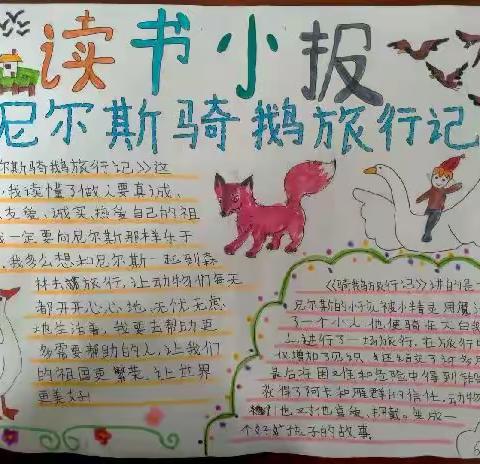 读书小报
尼尔斯骑鹅旅行记
尔斯骑鹅旅行记》这
，我读懂了做人要真诚、
友爱、诚实、热爱自己的祖
一定要向尼尔斯那样乐于
，我多么想和尼尔斯一起到森
林去旅行，让动物们每天
都开开心心地、无忧无虑
地生活着，我要去帮助更
多需要帮助的人，让我们
的祖国更繁荣，让世界
更美好
《骑鹅旅行记》讲的是
尼尔斯的小子被小精灵用魔
了一个小人，他便骑在大白
进行了一场旅行，在旅行
仅增加了见识，还结交了许多
最后在困难和危险中得到
获得了阿卡和雁群的信任，动物
们也对他喜爱、拥戴。变成一
个好孩子的故事